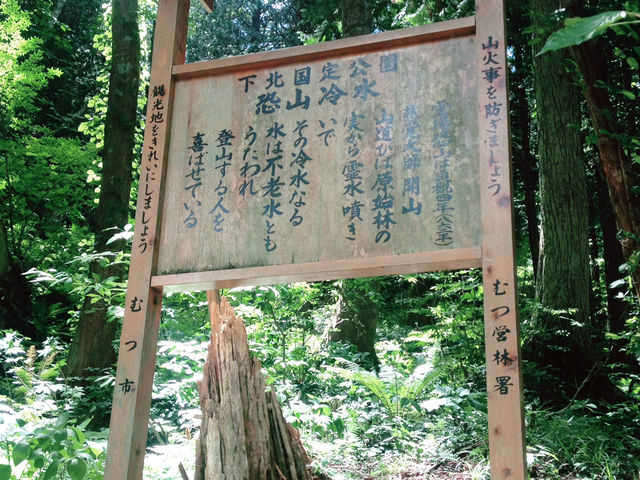 山火事を防ぎましょう むつ営林署
下北国定公園
恐山冷水
慈覚大師 開山
山道ひば原始林の
から霊水 噴き
いで
その冷水なる
水は不老水とも
うたわれ
登山する人を
喜ばせている
観光地をきれいにしましょう むつ市